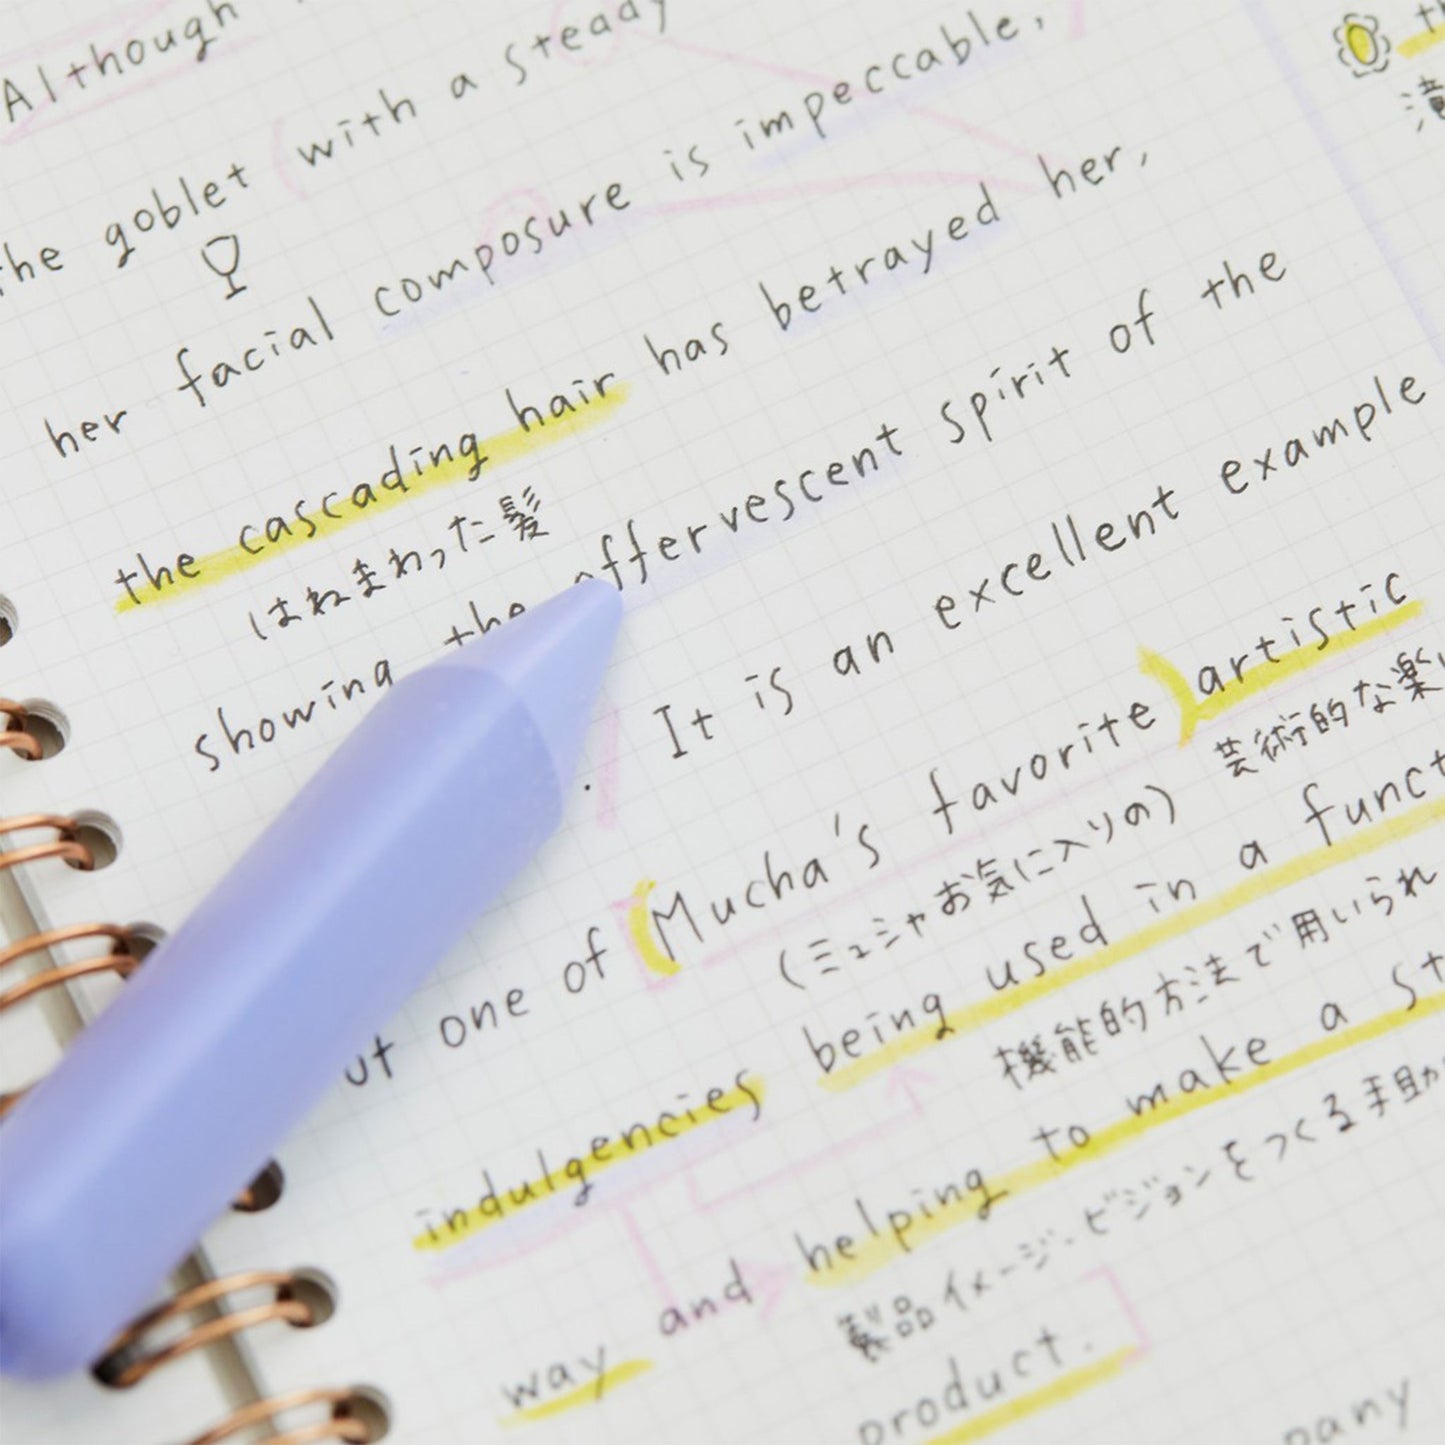 Although
the goblet (with a steady
her facial composure is impeccable,
the cascading hair has betrayed her,
はねまわった髪
showing the effervescent spirit of the
. It is an excellent example
one of (Mucha's favorite) artistic
(ミュシャお気に入りの) 芸術的な楽
indulgencies being used in a
機能的方法で用いられ
way and helping to make a
製品イメージ・ビジョンをつくる手助
product.